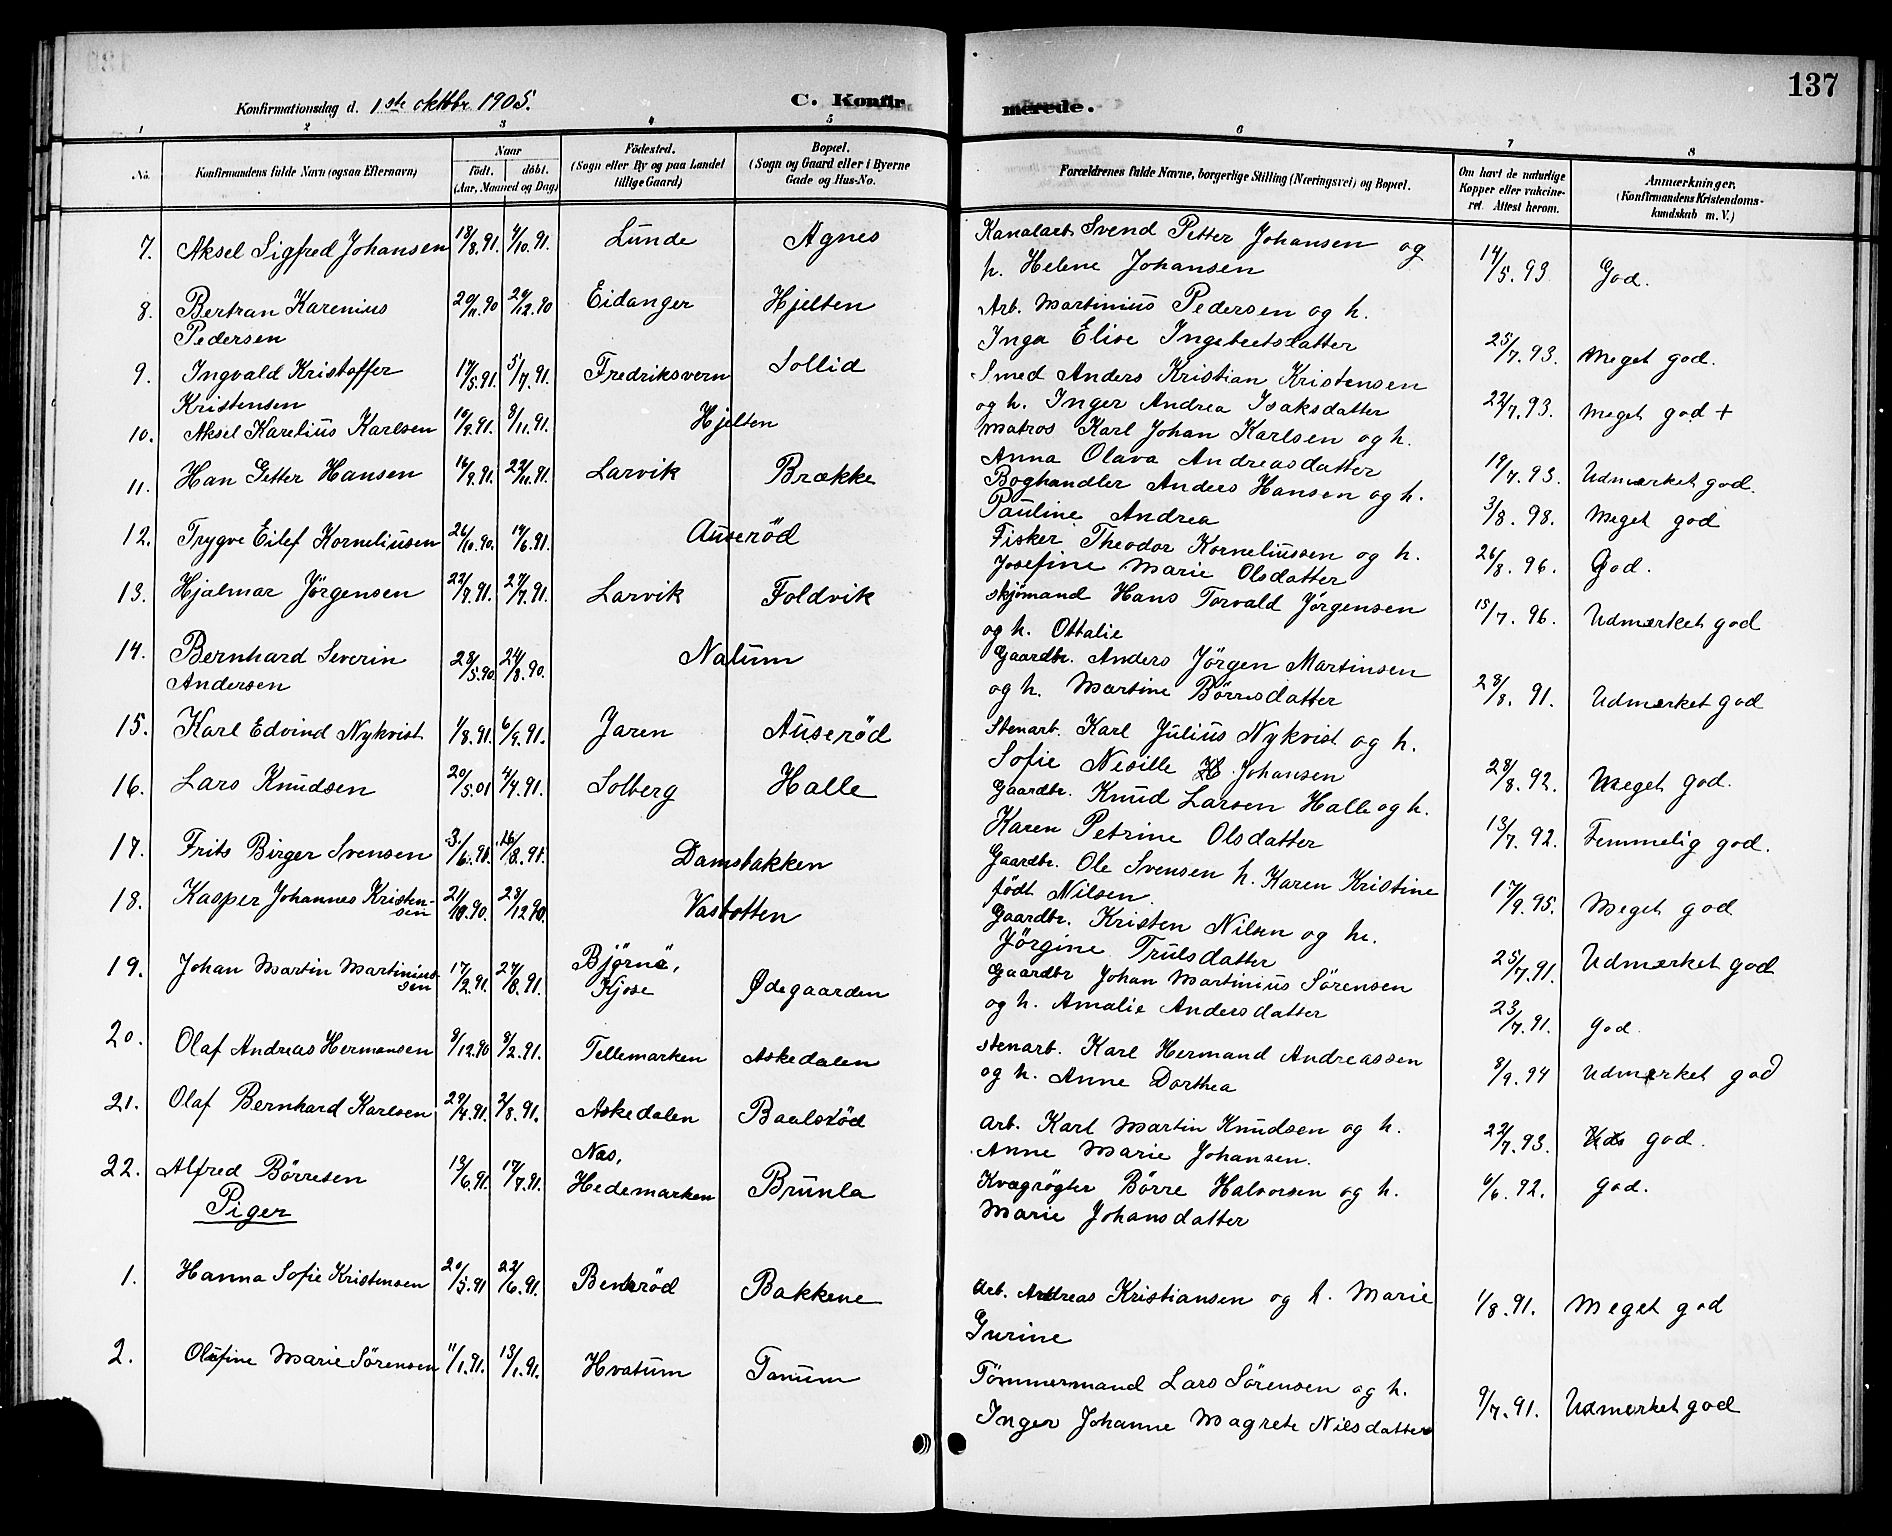 137
Konfirmationsdag d. 1ste oktbr. 1905.
C. Konfirmerede.
1 2 3 4 5 6 7 8
No.
Konfirmandens fulde Navn (ogsaa Efternavn)
Naar
födt. döbt.
(Aar, Maaned og Dag)
Födested.
(Sogn eller By og paa Landet
tillige Gaard)
Bopæl.
(Sogn og Gaard eller i Byerne
Gade og Hus-No.
Forældrenes fulde Navne, borgerlige Stilling (Næringsvei) og Bopæl.
Om havt de naturlige
Kopper eller vakcine-
ret. Attest herom.
Anmærkninger.
(Konfirmandens Kristendoms-
kundskab m. V.)
7. Aksel Sigfred Johansen 18/8.91. 4/10.91. Lunde Agnes Kanalarb. Svend Petter Johansen og
h. Helene Johansen 14/5.93. God.
8. Bertran Karenius 20/11.90 29/12.90 Eidanger Hjelten Arb. Martinius Pedersen og h.
Pedersen Inga Elise Ingebretsdatter 25/7.93. Meget god.
9. Ingvald Kristoffer 17/5.91. 5/7.91. Fredriksvern Sollid Smed Anders Kristian Kristensen
Kristensen og h. Inger Andrea Isaksdatter 22/7.93. Meget god +
10. Aksel Karelius Karlsen 10/9.91. 8/11.91. Hjelten Matros Karl Johan Karlsen og h.
Anna Olava Andreasdatter 19/7.93. Udmærket god.
11. Han Petter Hansen 16/9.91. 22/11.91. Larvik Brække Boghandler Anders Hansen og h.
Pauline Andrea 3/8.98. Meget god
12. Trygve Eilef Korneliusen 26/10.90. 14/6.91. Auseröd Fisker Theodor Korneliussen og h.
Josefine Marie Olsdatter 26/8.96. God.
13. Hjalmar Jörgensen 22/4.91. 27/7.91. Larvik Foldvik Skjømand Hans Torvald Jörgensen
og h. Ottalie 15/7.96. Udmærket god
14. Bernhard Severin 28/5.90 24/8.90. Nalum Gaardbr. Anders Jörgen Martinsen
Andersen og h. Martine Börresdatter 28/8.91. Udmærket god
15. Karl Edvind Nykvist 1/8.91. 6/9.91. Jaren Auseröd Stenarb. Karl Julius Nykvist og h.
Sofie Nesille Johansen 28/8.92. Meget god.
16. Lars Knudsen 20/5.01 4/4.91. Solberg Halle Gaardbr. Knud Larsen Halle og h.
Karen Petrine Olsdatter 13/7.92. Temmelig god.
17. Frits Birger Svensen 3/6.91. 16/8.91. Damsbakken Gaardbr. Ole Svensen h. Karen Kristine
födt Nilsen. 17/9.95. Meget god
18. Kasper Johannes Kristen- 21/10.90. 28/12.90. Vasbotten Gaardbr. Kristen Nilsen og h.
sen Jörgine Trulsdatter 25/7.91. Udmærket god
19. Johan Martin Martinius- 17/2.91. 27/8.91. Bjørnø, Gaardbr Johan Martinius Sörensen
sen Kjose Ødegaarden og h. Amalie Andersdatter 23/7.91. God.
20. Olaf Andreas Hermansen 9/12.90 9/2.91. Tellemarken Askedalen Stenarb. Karl Hermand Andreassen
og h. Anne Dorthea 8/9.94 Udmærket god
21. Olaf Bernhard Karlsen 29/4.91. 2/8.91. Askedalen Baalsröd Arb. Karl Martin Knudsen og h.
Anne Marie Johansen. 22/7.93. god.
22. Alfred Börresen 13/6.91. 17/7.91. Nas, Kvægrøgter Börre Halvorsen og h.
Hedemarken Brunla Marie Johansdatter 6/6.92. God.
Piger
1. Hanna Sofie Kristensen 20/5.91 22/6.91. Benkröd Bakkene Arb. Andreas Kristiansen og h. Marie
Gurine 1/8.91. Meget god
2. Olufine Marie Sørensen 11/1.91. 13/1.91. Hvatum Tanum Tömmermand Lars Sörensen og h.
Inger Johanne Magrete Nilsdatter 9/7.91. Udmærket god